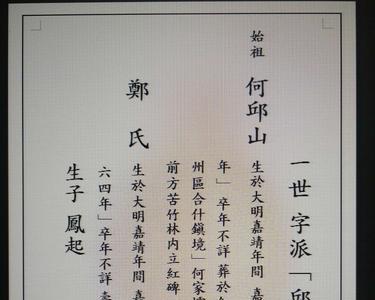 一世 字派「邱
始祖 何邱山 生於大明嘉靖年間 嘉
年」卒年不詳 葬於
州區合什鎮境」何家
前方苦竹林內立紅碑
鄭氏 生於大明嘉靖年間
六四年」卒年不詳
生子 鳳起